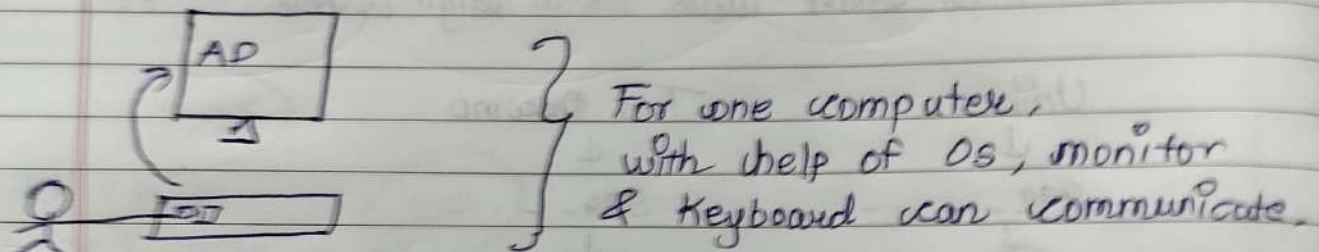 AD
For one computer,
with help of OS, monitor
& Keyboard can communicate.